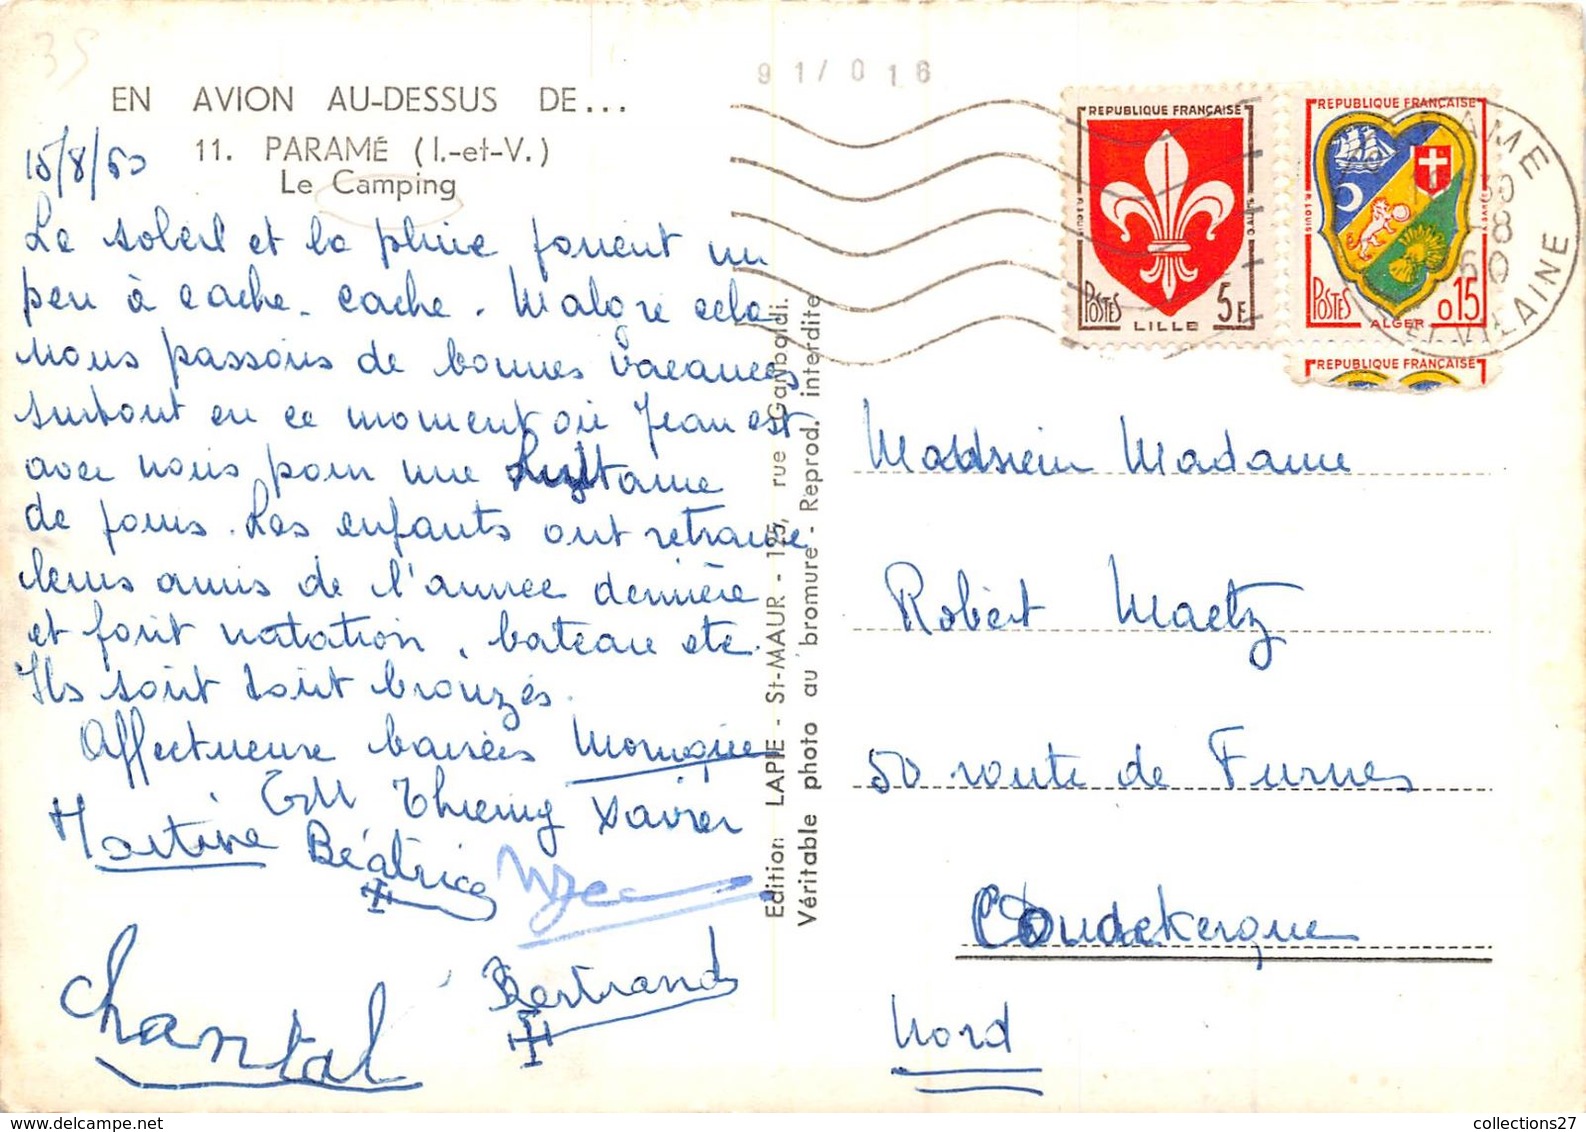 35
91/016
EN AVION AU-DESSUS DE...
11. PARAMÉ (I.-et-V.)
Le Camping
15/8/60
Le soleil et la pluie jouent un
peu à cache-cache. Malgré cela
nous passons de bonnes vacances
surtout en ce moment où Jean est
avec nous pour une quinzaine
de jours. Les enfants ont retrouvé
leurs amis de l'année dernière
et font natation, bateau etc.
Ils sont tout bronzés.
Affectueuse baisées Monique
Thierry Xavier
Martine Béatrice
Bertrand
Chantal
Edition LAPIE - St-MAUR - 125, rue Garibaldi.
Véritable photo au bromure - Reprod. interdite
REPUBLIQUE FRANÇAISE
POSTES 5F
LILLE
REPUBLIQUE FRANÇAISE
POSTES 0,15
ALGER
REPUBLIQUE FRANÇAISE
8
60
ET VILAINE
Monsieur Madame
Robert Maetz
50 route de Furnes
Coudekerque
Nord
collections27